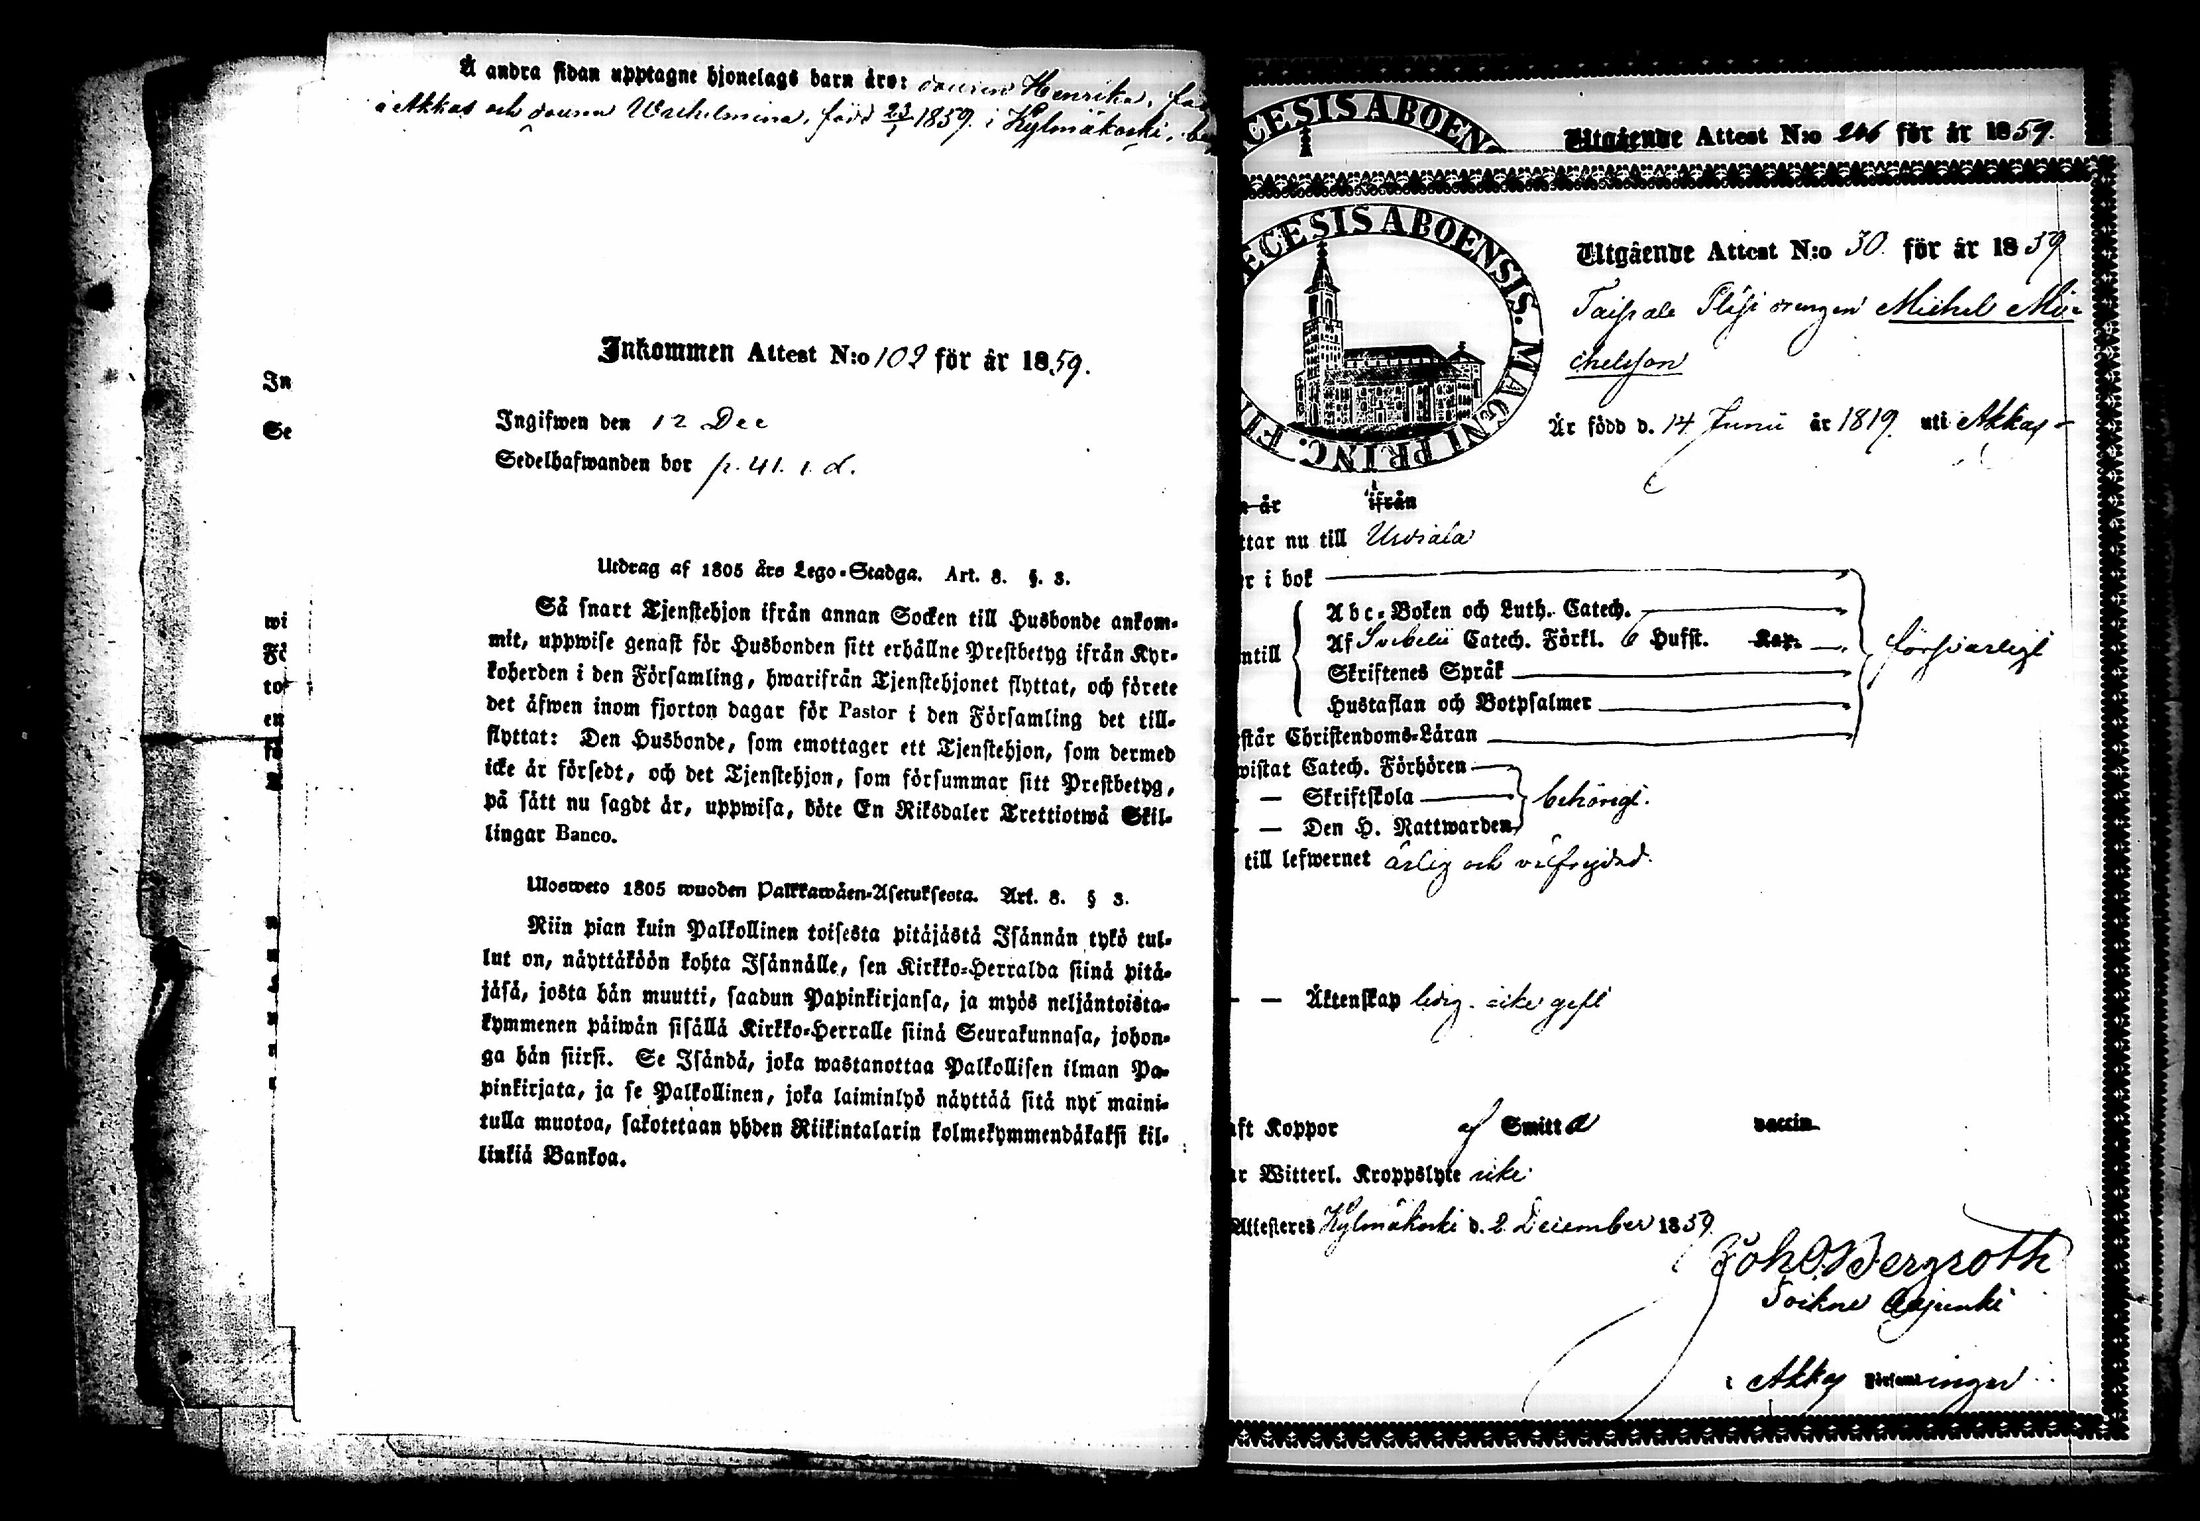 Å andra sidan upptagne hjonelags barn äro: dottren Henrika, föd
i Akkas och dottren Wilhelmina, född 23/1 1859 i Kylmäkoski,
Inkommen Attest N:o 102 för år 1859.
Ingifwen den 12 Dec
Sedelhafwanden bor p. 41. i. d.
In
Se
wi
Fö
to
en
Utdrag af 1805 års Lego-Stadga. Art. 8. §. 3.
Så snart Tjenstehjon ifrån annan Socken till Husbonde ankom-
mit, uppwise genast för Husbonden sitt erhållne Prestbetyg ifrån Kyr-
koherden i den Församling, hwarifrån Tjenstehjonet flyttat, och förete
det äfwen inom fjorton dagar för Pastor i den Församling det till-
flyttat: Den Husbonde, som emottager ett Tjenstehjon, som dermed
icke är försedt, och det Tjenstehjon, som försummar sitt Prestbetyg,
på sätt nu sagdt är, uppwisa, böte En Riksdaler Trettiotwå Skil-
lingar Banco.
Ulosweto 1805 wuoden Palkkawäen-Asetuksesta. Art. 8. § 3.
Niin pian kuin Palkollinen toisesta pitäjästä Isännän tykö tul-
lut on, näyttäköön kohta Isännälle, sen Kirkko-Herralda siinä pitä-
jäsä, josta hän muutti, saadun Papinkirjansa, ja myös neljäntoista-
kymmenen päiwän sisällä Kirkko-Herralle siinä Seurakunnasa, johon-
ga hän siirsi. Se Isändä, joka wastanottaa Palkollisen ilman Pa-
pinkirjata, ja se Palkollinen, joka laiminlyö näyttää sitä nyt maini-
tulla muotoa, sakotetaan yhden Riikintalarin kolmekymmendäkaksi kil-
linkiä Bankoa.
CESIS ABOENS
Utgående Attest N:o 206 för år 1859.
ECESIS ABOENSIS. MAGNI PRINC. FI
Utgående Attest N:o 30. för år 1859
Taipale Pläsi drengen Michel Mi-
chelsson
Är född d. 14 Junii år 1819. uti Akkas
är ifrån
ttar nu till Urdiala
er i bok
Abc-Boken och Luth. Catech.
Af Svebelii Catech. Förkl. 6 Hufst. Kap.
försvarligt
ntill
Skriftenes Språk
Hustaflan och Botpsalmer
står Christendoms-Läran
wistat Catech. Förhören
— Skriftskola
behörigt.
— Den H. Nattwarden
till lefwernet ärlig och välfrejdad.
— — Äktenskap ledig. icke gift
aft Koppor af Smitta vaccin
ar Witterl. Kroppslyte icke
Attesteres Kylmäkoski d. 2 December 1859
Joh O. Bergroth
Sockne Adjunkt
i Akkas Församlingen